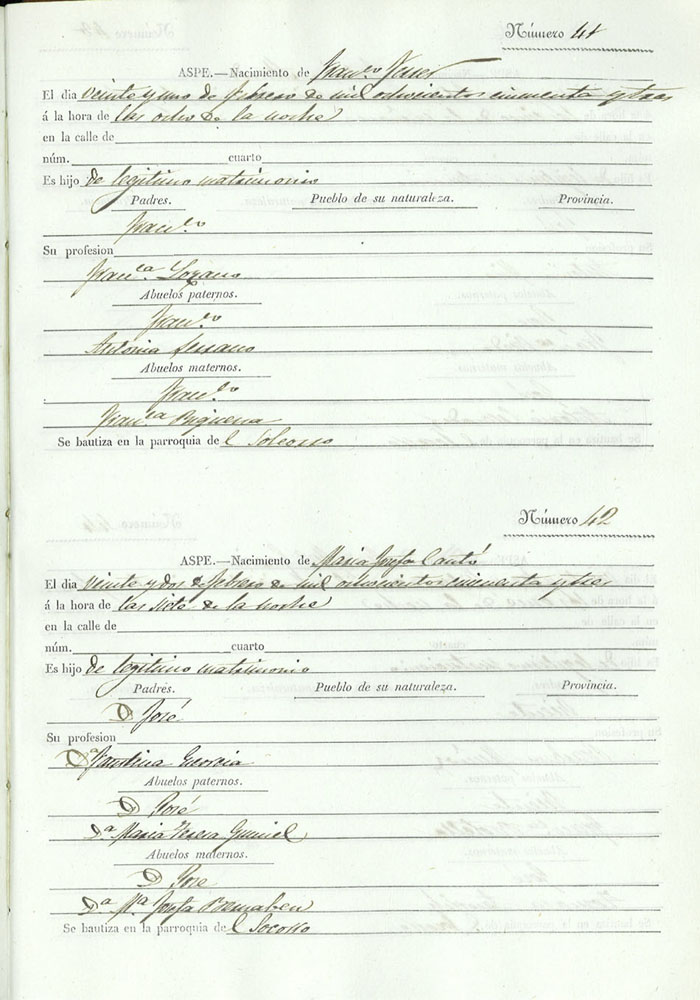 Número 41
ASPE.—Nacimiento de Fran.co
El dia veinte y uno de febrero de mil ochocientos cincuenta y tres
á la hora de las ocho de la noche
en la calle de
núm. cuarto
Es hijo de legitimo matrimonio
Padres. Pueblo de su naturaleza. Provincia.
Fran.co
Su profesion
Fran.ca Lozano
Abuelos paternos.
Fran.co
Antonia Serrano
Abuelos maternos.
Fran.co
Fran.ca
Se bautiza en la parroquia de l Socorro
Número 42
ASPE.—Nacimiento de Maria Josefa Cantó
El dia veinte y dos de febrero de mil ochocientos cincuenta y tres
á la hora de las siete de la noche
en la calle de
núm. cuarto
Es hijo de legitimo matrimonio
Padres. Pueblo de su naturaleza. Provincia.
D José
Su profesion
D.a Faustina
Abuelos paternos.
D José
D.a Maria Teresa
Abuelos maternos.
D Jose
D.a M.a Josefa
Se bautiza en la parroquia de l Socorro